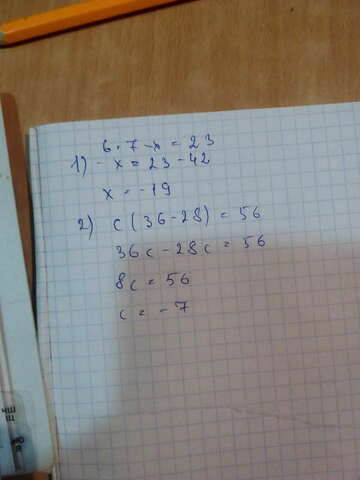 6 · 7 - x = 23
1) - x = 23 - 42
x = - 19
2) c (36 - 28) = 56
36c - 28c = 56
8c = 56
c = - 7